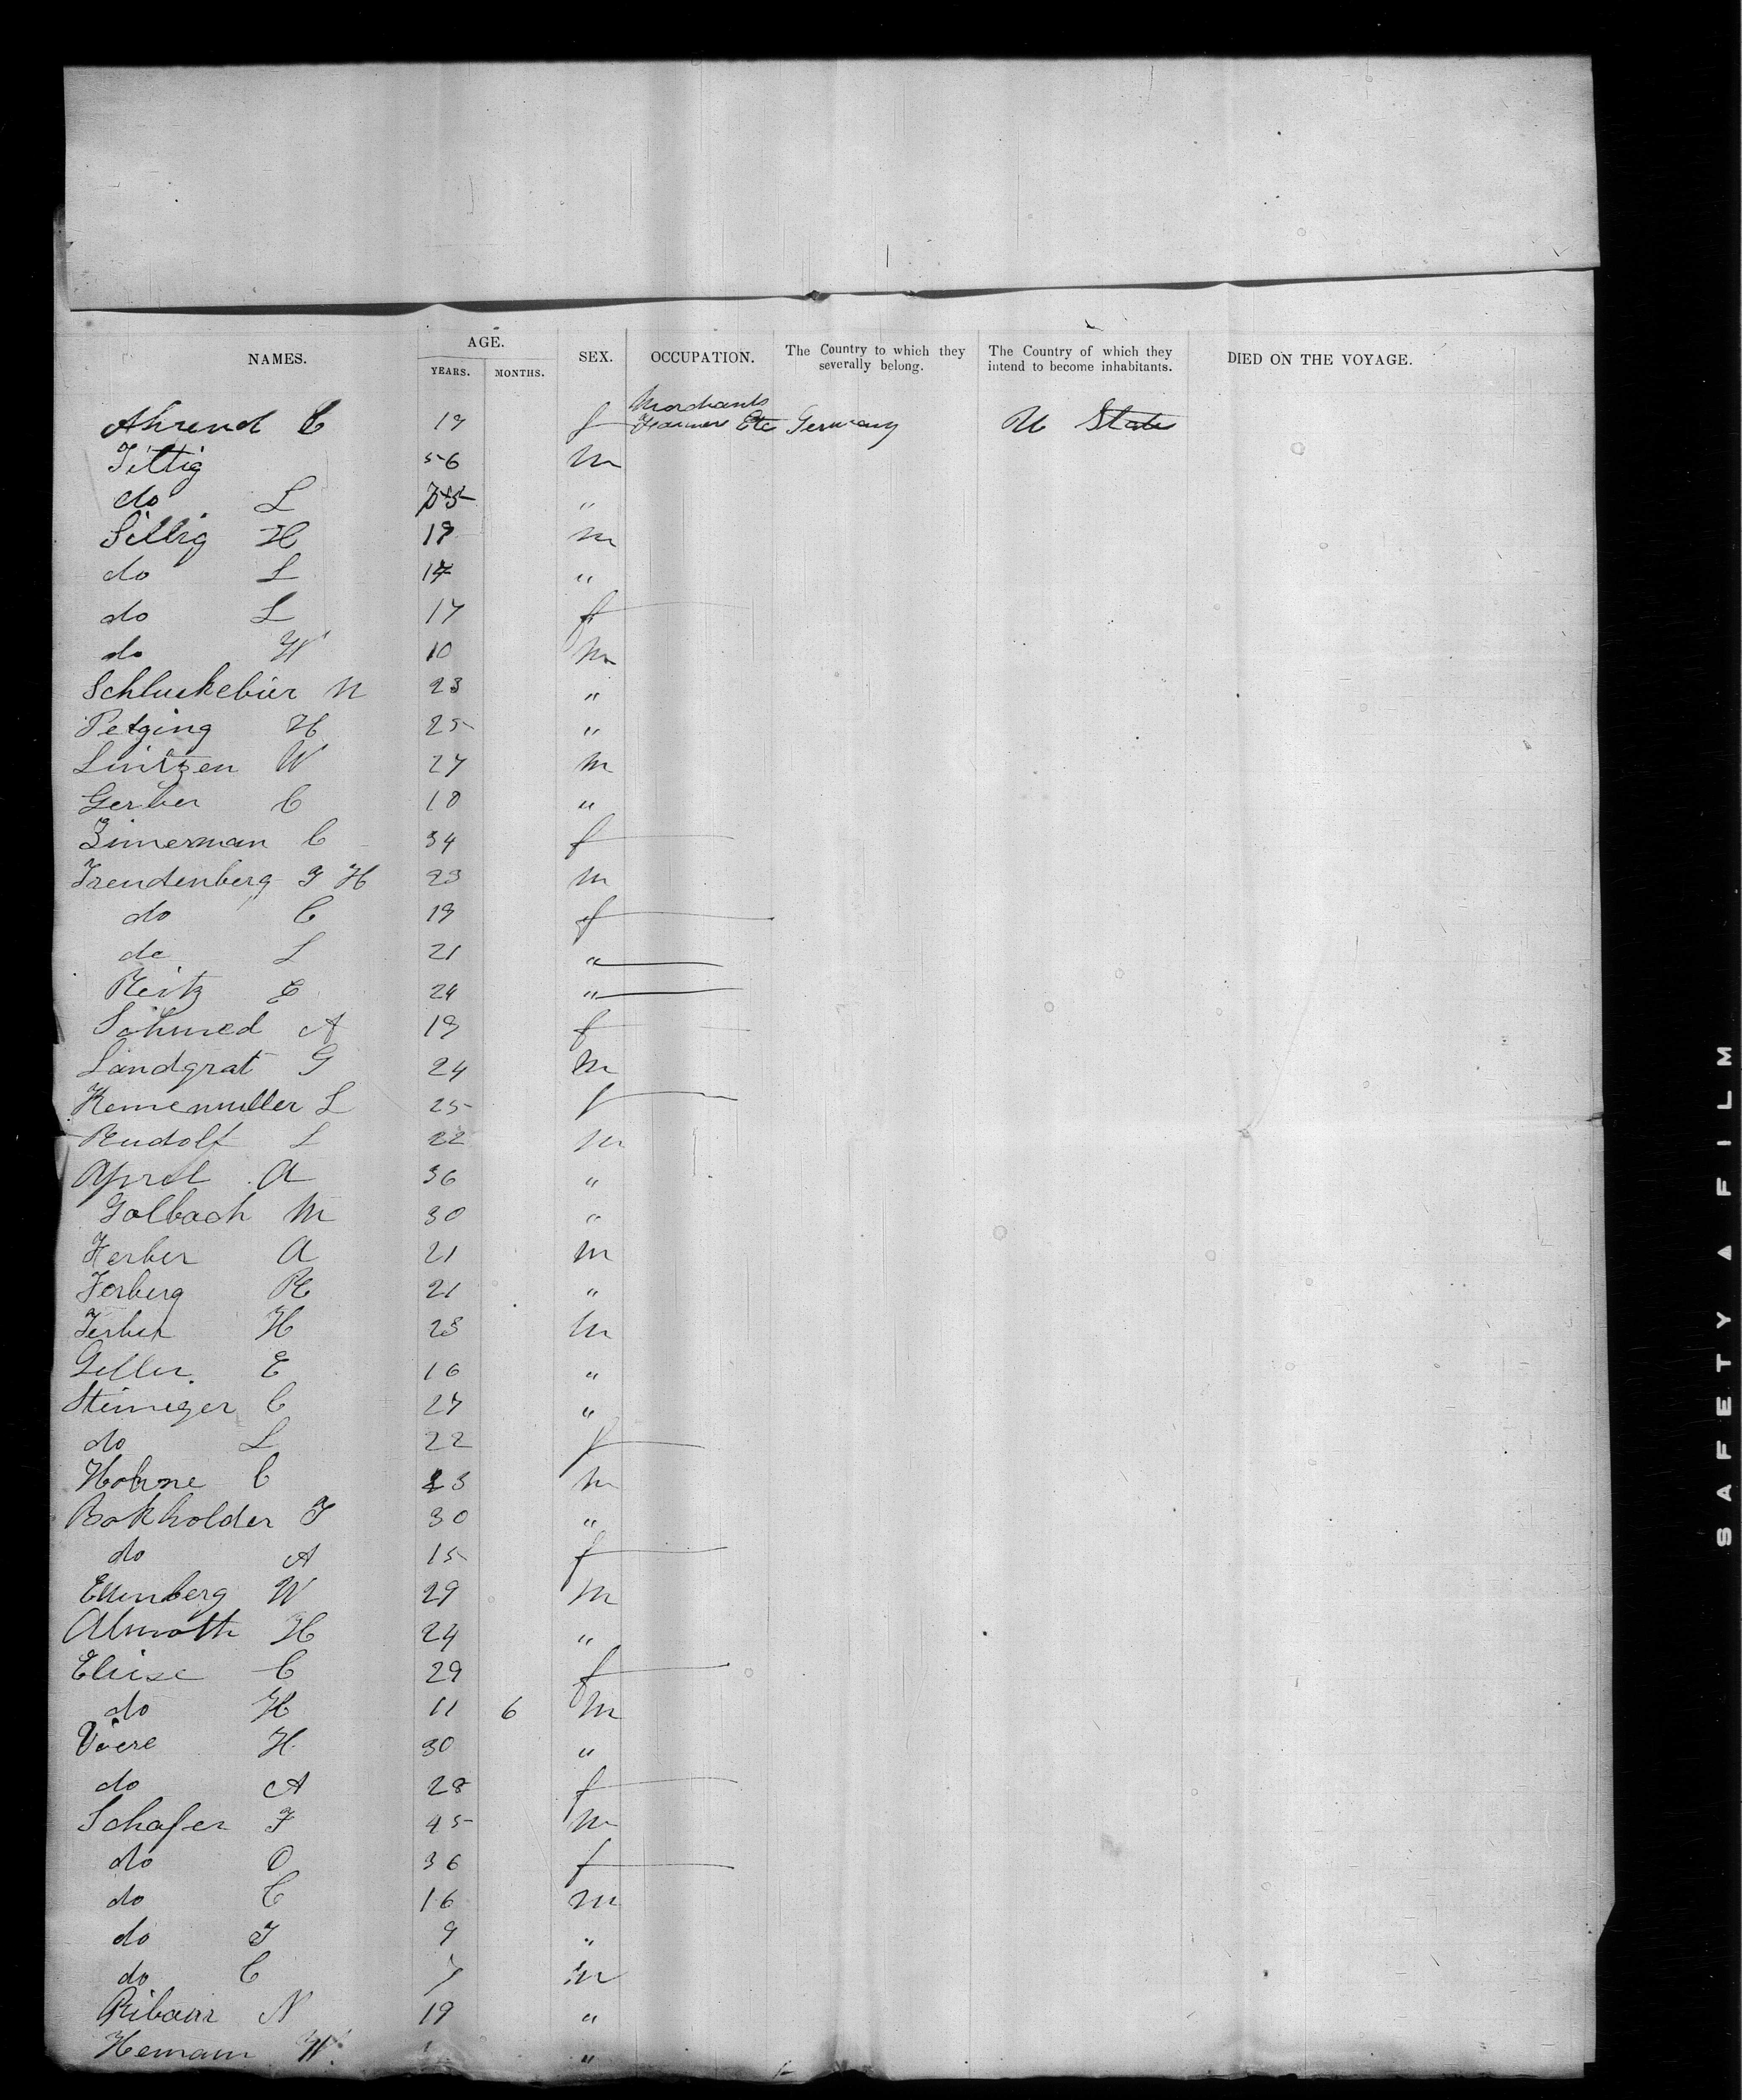 NAMES. AGE. SEX. OCCUPATION. The Country to which they severally belong. The Country of which they intend to become inhabitants. DIED ON THE VOYAGE.
YEARS. MONTHS.
Merchants
Ahrend C 19 f Farmers Etc Germany U States
Tittig 56 m
do L "
Sillig H 19 m
do L 14 "
do L 17 f
do W 10 m
Schluckebier N 23 "
Petging H 25 "
Lintzen W 27 m
Gerber C 18 "
Zimerman C 34 f
Freudenberg F H 23 m
do C 19 f
do L 21 "
Reitz E 24 "
Sohmed A 19 f
Landgrat G 24 m
Kemenmuller L 25 f
Rudolf L 22 m
Aprel A 36 "
Golbach M 30 "
Ferber A 21 m
Ferberg R 21 "
Ferber H 23 m
Geller E 16 "
Steiniger C 27 "
do L 22 f
Hohne C 23 m
Bokholder F 30 "
do A 15 f
Ellenberg W 29 m
Almoth H 24 "
Eliese C 29 f
do H 11 6 m
Voere H 30 "
do A 28 f
Schafer F 45 m
do O 36 f
do C 16 m
do F 9 "
do C 7 m
Ribair N 19 "
Hemann W "
SAFETY ▲ FILM